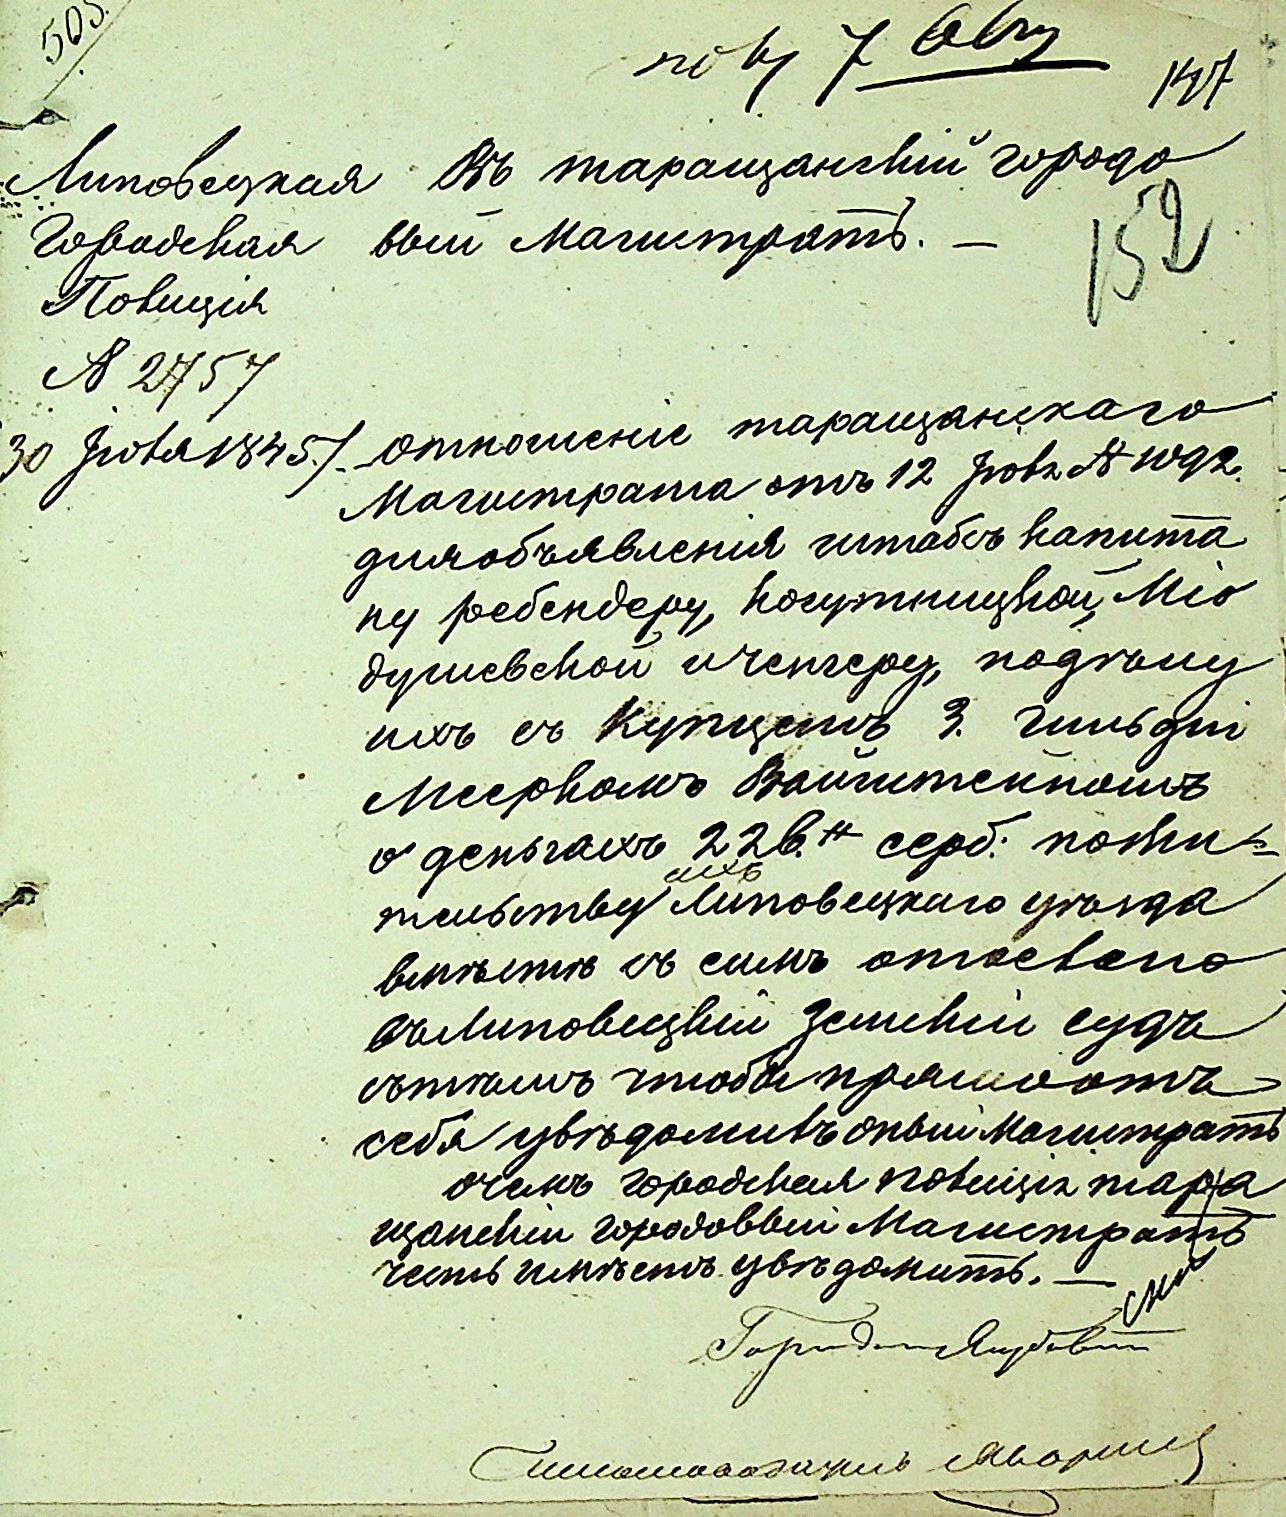 505.
пол 7 Авгу
147
Липовецкая Въ таращанскій городо
Городская вый Магистратъ. —
152
Полиція
№ 2757
30 Іюля 1845 г. отношеніе таращанскаго
Магистрата отъ 12 Іюля №
для объявленія штабсъ капита
ну ребендеру, косутницкой, Міо
душевской и ченгеру, подѣлу
ихъ съ Купцемъ 3. гильдіи
Мееркомъ Вайнштейномъ
о деньгахъ 22 в. сереб. пожи-
ихъ
тельству Липовецкаго уѣзда
вмѣстѣ съ симъ отослано
въ Липовецкій Земскій судъ
сътѣмъ чтобы прямо отъ
себя увѣдомилъ оный Магистратъ
очемъ городская полиція тара
щанскій городовый Магистратъ
честь имѣетъ увѣдомить. —
Городничій
Письмоводитель